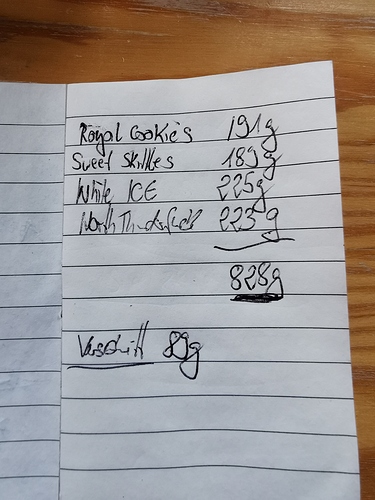 Royal Cookies 191g
Sweet Skittles 189g
White ICE 225g
North Thunderfuck 223g
828g
Verschnitt 89g